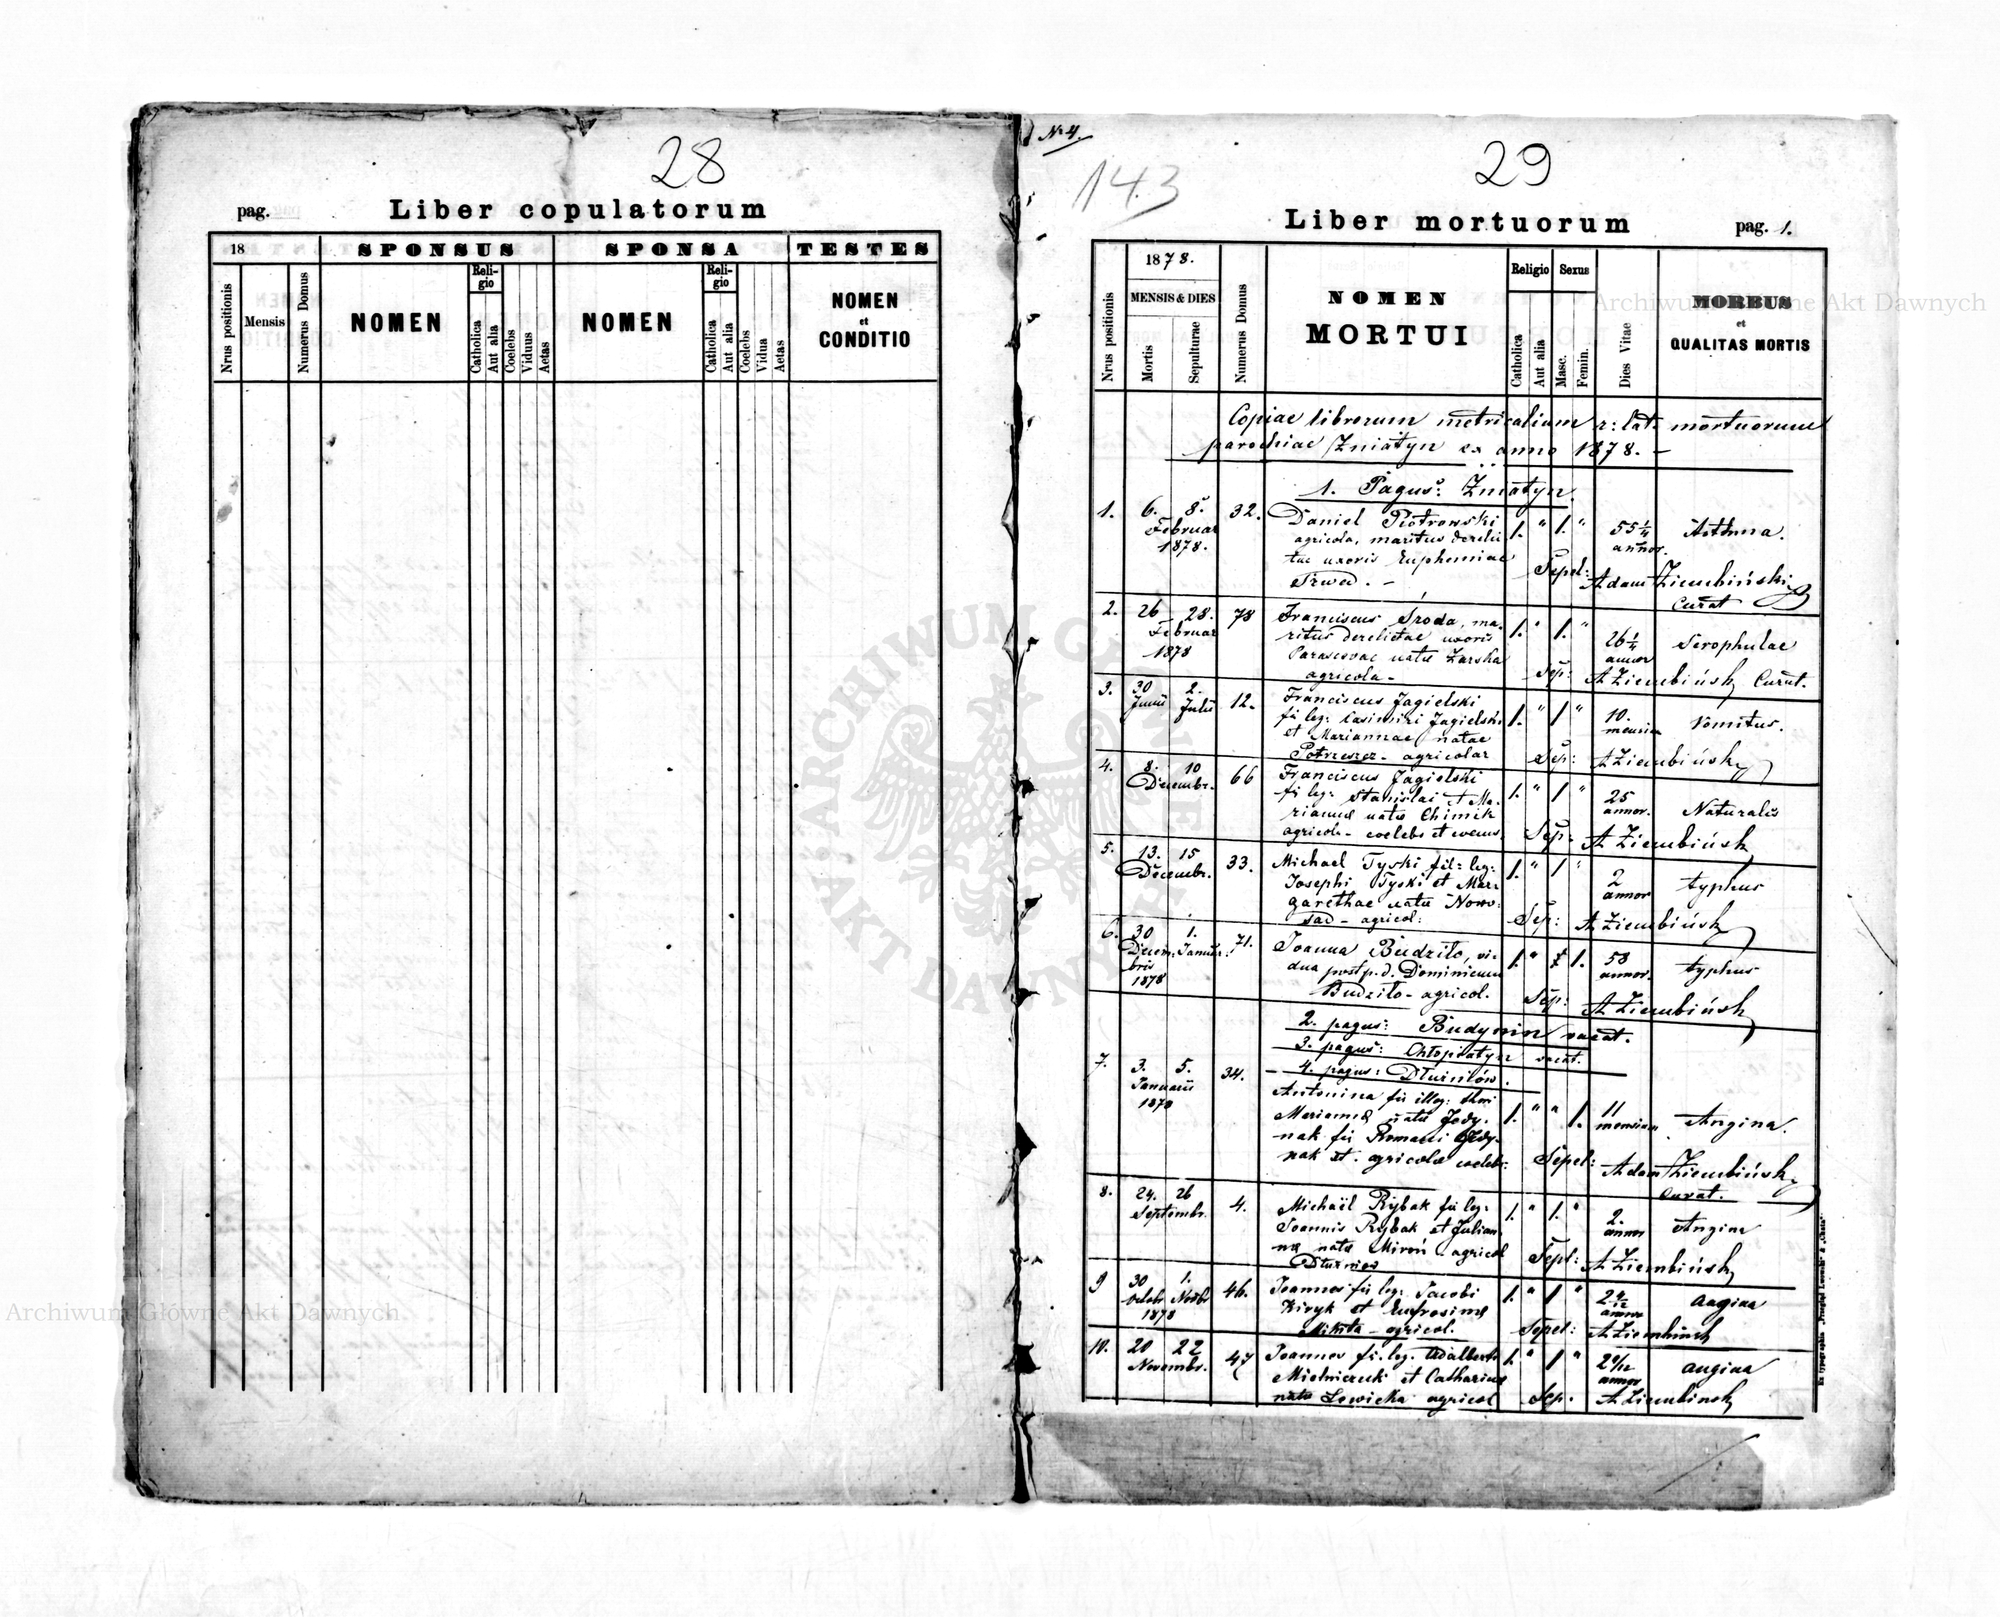 28
pag.
Liber copulatorum
18
SPONSUS
SPONSA
TESTES
Nrus positionis
Mensis
Numerus Domus
NOMEN
Religio
Catholica
Aut alia
Coelebs
Viduus
Aetas
NOMEN
Religio
Catholica
Aut alia
Coelebs
Vidua
Aetas
NOMEN
et
CONDITIO
№ 4.
143
29
Liber mortuorum
pag. 1.
Nrus positionis
1878.
MENSIS & DIES
Mortis
Sepulturae
Numerus Domus
NOMEN
MORTUI
Religio
Catholica
Aut alia
Sexus
Masc.
Femin.
Dies Vitae
MORBUS
et
QUALITAS MORTIS
Copiae librorum metricalium r: lat: mortuorum
parochiae Żniatyn ex anno 1878. –
1. Pagus: Żniatyn.
1. 6. 8. 32. Daniel Piotrowski 1. " 1. " 55 1/4 Asthma.
Februar agricola, maritus derelic annor.
1878. tae uxoris Euphemiae Sepel: Adam Ziembiński
Szwed. – Curat
2. 26 28. 78 Franciscus Środa, ma- 1. " 1. "
Februar ritus derelictae uxoris 26 1/4 Scrophulae
1878 Parascevae natae Zarska annor
agricola – Sep: A Ziembińsk Curat.
3. 30 2. 12. Franciscus Jagielski 1. " 1 " 10. Vomitus.
Junii Julii fii leg: Casimiri Jagielski mensium
et Mariannae natae
agricolar Sep: A Ziembińsk
4. 8. 10 66 Franciscus Jagielski 1. " 1 " 25 Naturalis
Decembr. fii leg: Stanislai et Ma- annor.
riannae natae Chimiak
agricola – coelebs Sep: A Ziembińsk
5. 13. 15 33. Michael Tyski fil: leg: 1. " 1 " 2 typhus
Decembr. Josephi Tyski et Mar- annor
garethae natae Nowo-
sad – agricol: Sep: A Ziembińsk
6. 30 1. 71. Joanna Budziło, vi- 1. " 1. 58 typhus
Decem- Januar: dua post p. d. Dominicum annor.
bris
1878 Budziło – agricol. Sep: A Ziembińsk
2. pagus: Budynin vacat.
3. pagus: Chłopiatyn vacat.
4. pagus: Dłużniów.
7. 3. 5. 34. Antonina fii illeg: 1. " " 1. 11 Angina.
Januarii Mariannae natae Jedy- mensium
1878 nak fii Romani Jedy-
nak et. agricolae coelebs. Sepel: Adam Ziembińsk
Curat.
8. 24. 26 4. Michaël Rybak fii leg: 1. " 1. " 2. Angina
Septembr. Joannis Rybak et Julian- annor
nae natae Miroń agricol
Dłużniow Sepl: A Ziembińsk
9 30 1. 46. Joannes fii leg: Jacobi 1. " 1 " 2 4/12 angina
Octobr Novbr Kiryk et Eufrosinae annor
1878 Mikita – agricol. Sepel: A Ziembińsk
10. 20 22 47 Joannes fi. leg. Adalberti 1. " 1 " angina
Novembr. Mielniczuk et Catharinae annor
natae Lewicka agricol Sep. A Ziembińsk
Archiwum Główne Akt Dawnych
Archiwum Główne Akt Dawnych
ARCHIWUM GŁÓWNE AKT DAWNYCH